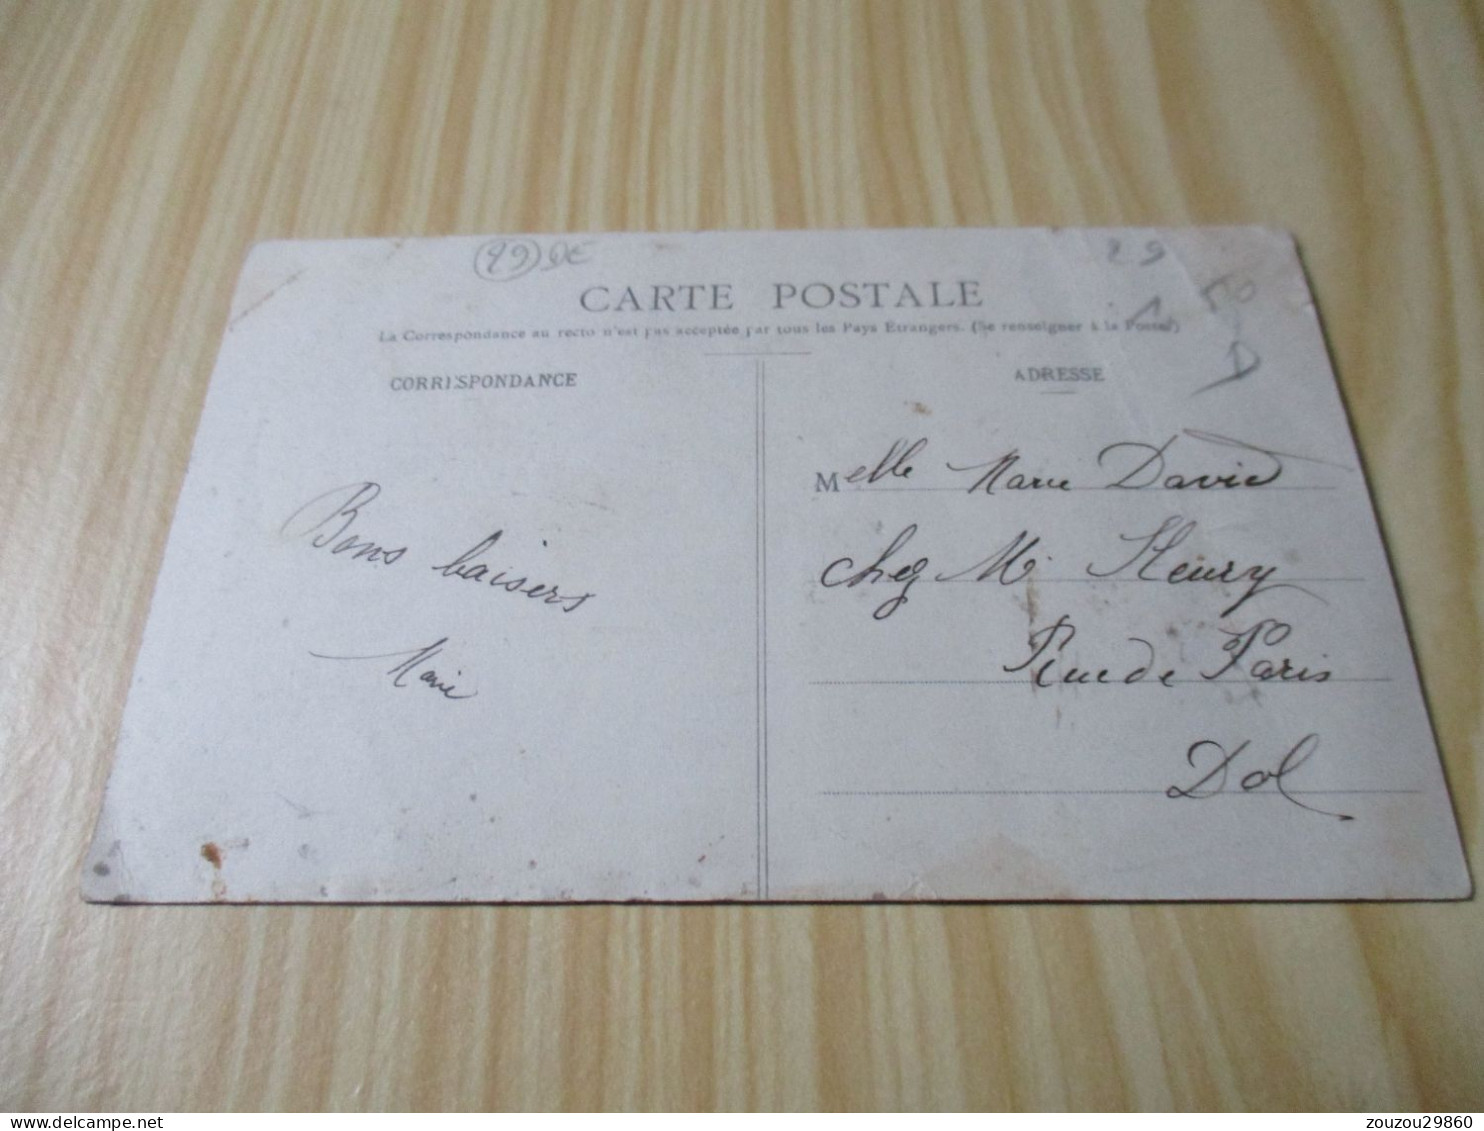 29 DE
29
CARTE POSTALE
La Correspondance au recto n'est pas acceptée par tous les Pays Étrangers. (Se renseigner à la Poste)
CORRESPONDANCE
ADRESSE
D
Bons baisers
Marie
Melle Marie David
chez Mr Fleury
Rue de Paris
Dol
zouzou29860